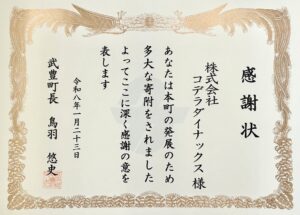 感謝状
株式会社
コデラダイナックス 様
あなたは本町の発展のため
多大な寄附をされました
よってここに深く感謝の意を
表します
令和八年一月二十三日
武豊町長 鳥羽 悠史